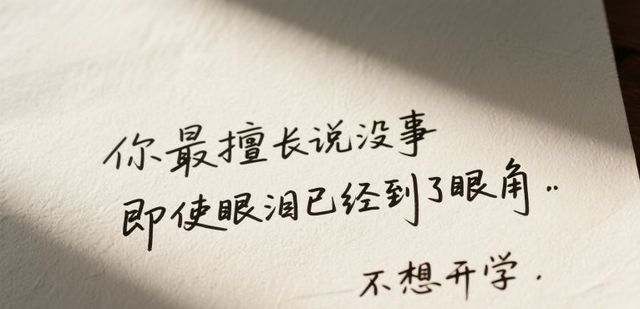 你最擅长说没事
即使眼泪已经到了眼角..
不想开学.